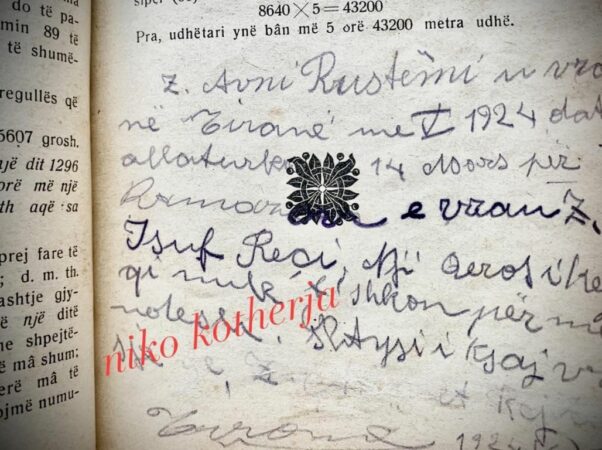 do të pa-
min 89 të
të shumë-
regullës që
5607 grosh.
një dit 1296
orë më një
th aqë sa
prej fare të
; d. m. th.
ashtje gjy-
ë një ditë
me shpejtë-
ë mâ shum;
erë mâ të
ojmë numu-
8640 × 5 = 43200
Pra, udhëtari ynë bân më 5 orë 43200 metra udhë.
Z. Avni Rustemi u vra
në Tiranë me V 1924 dat
allaturka 14 Mors për
Ramaz e vrau Z.
Isuf Reçi, Nji
qi nuk shkon për
i ksaj
Tirana 1924
niko kotherja